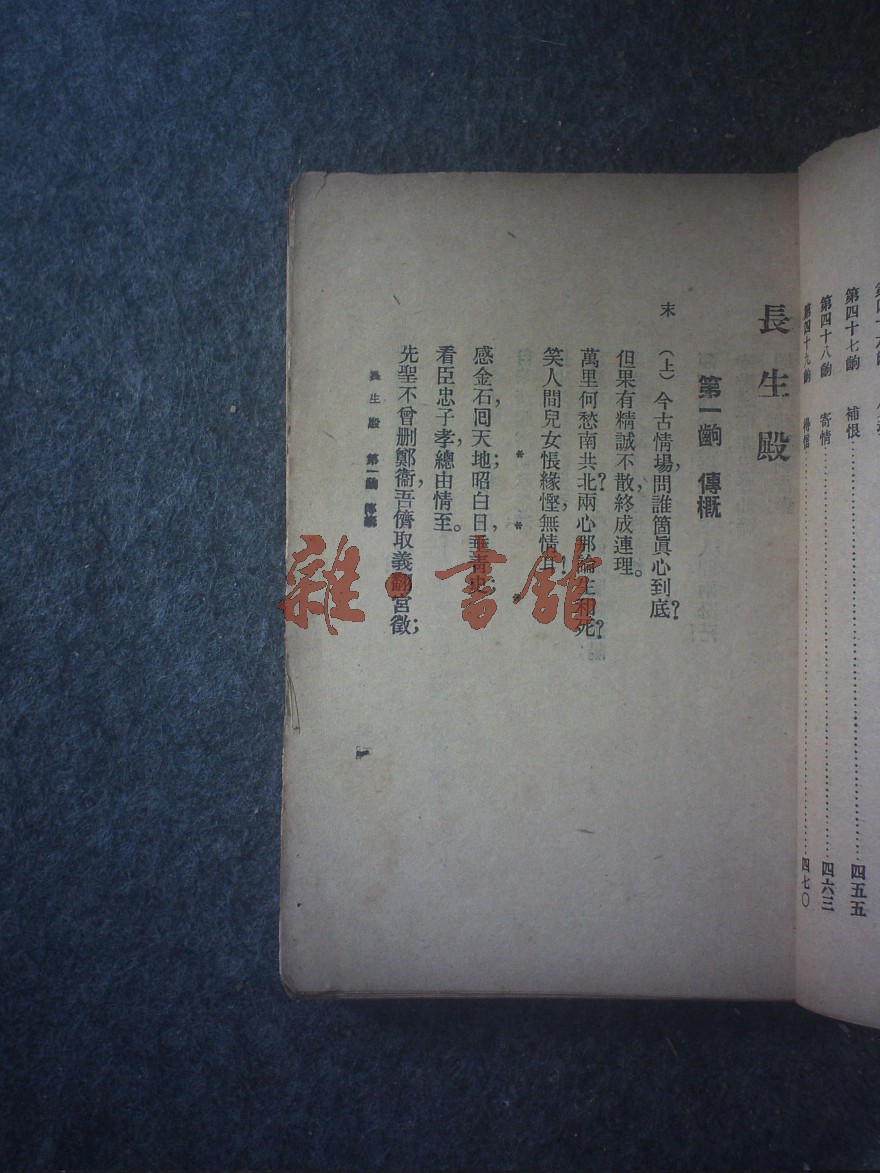 第四十七齣 補恨……四五五
第四十八齣 寄情……四六三
第四十九齣 得信……四七〇
長生殿
第一齣 傳概
末 (上)今古情場，問誰箇眞心到底？
但果有精誠不散，終成連理。
萬里何愁南共北？兩心那論生和死？
笑人間兒女悵緣慳，無情耳！
＊ ＊ ＊
感金石，囘天地；昭白日，垂靑史；
看臣忠子孝，總由情至。
先聖不曾删鄭衞，吾儕取義翻宮徵；
長生殿 第一齣 傳概
一
雜·書館